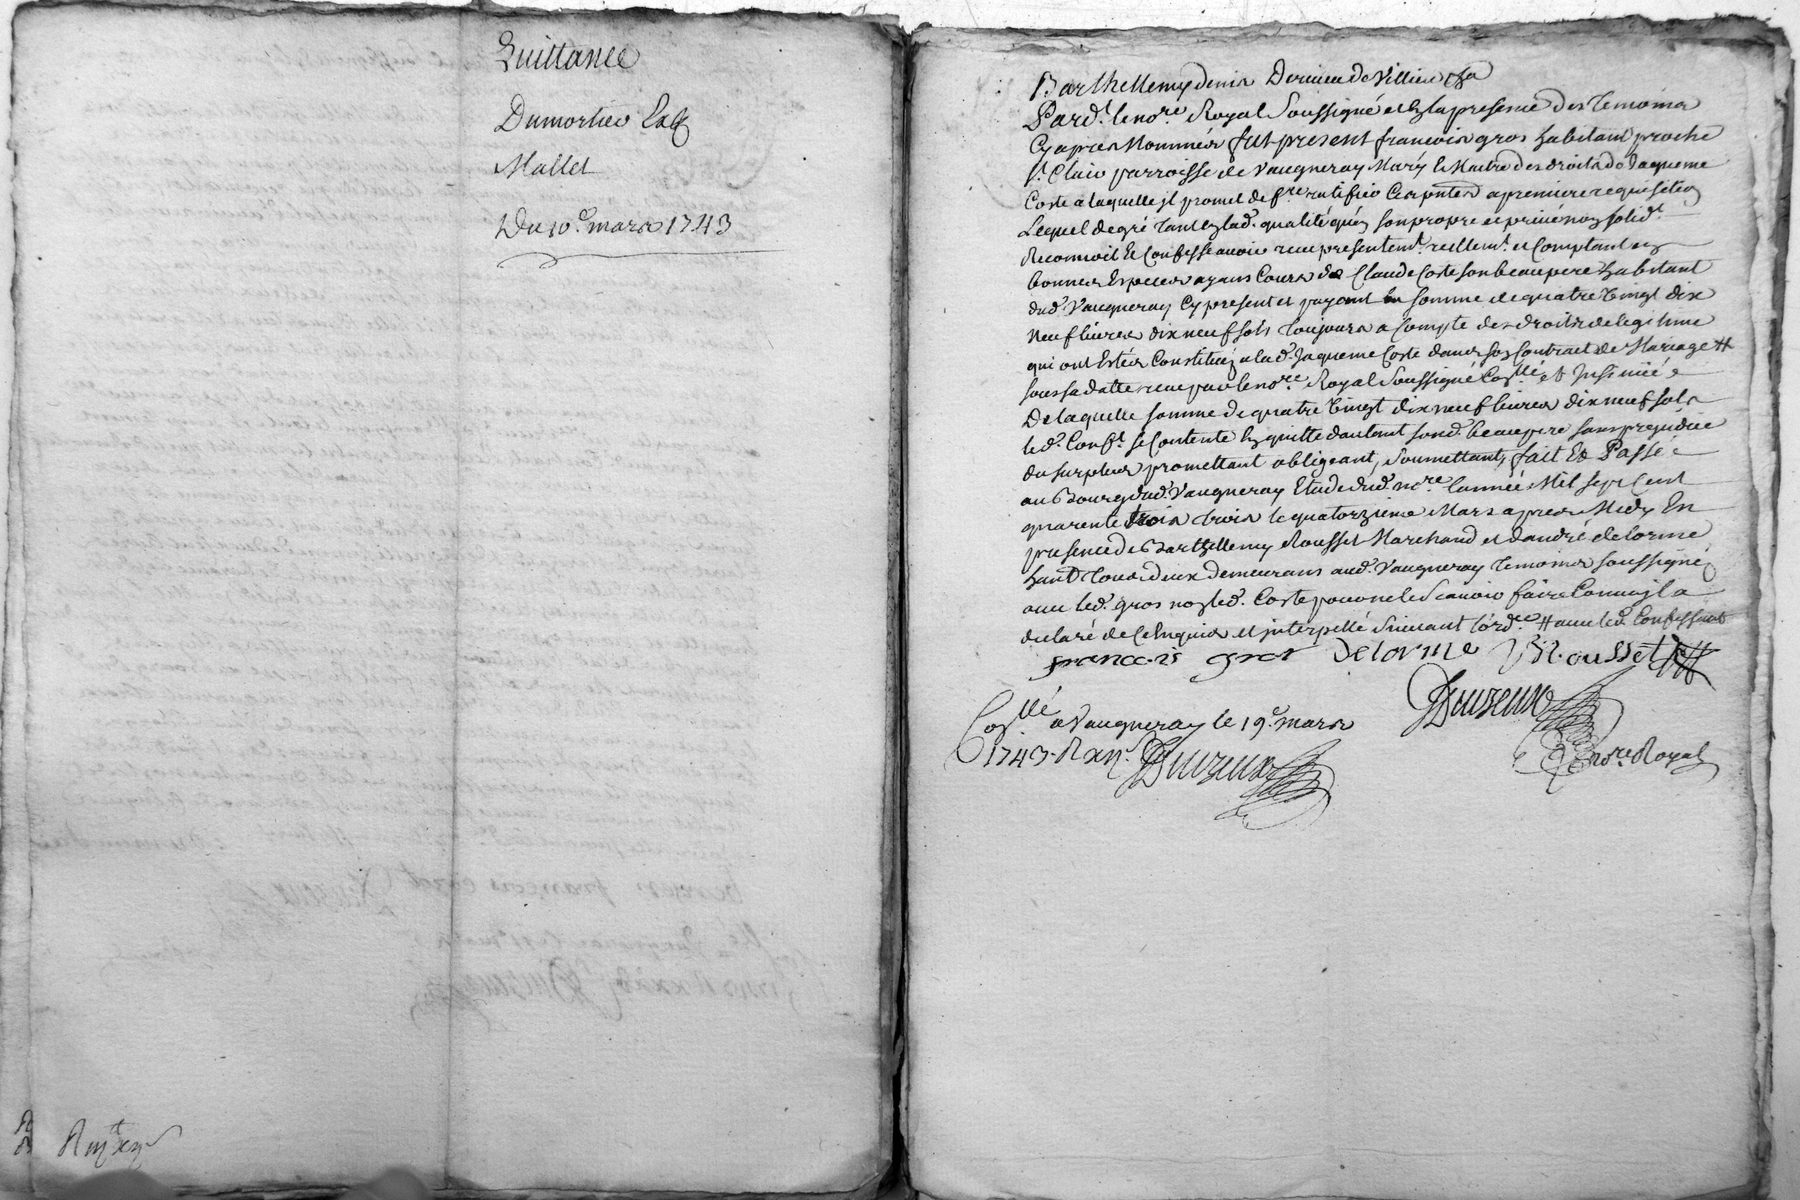 Quittance
Dumortier
Mallet
Du 10e. mars 1743
Barthellemy denis Derieu de Villieu
Pard.t le no.re Royal Soussigné et En la presence des Temoins
Cy apres Nommés fut present francois gros habitant proche
St. Clair parroisse de Vaugneray Mary & Maitre des droits de Jaqueme
Coste a laquelle jl promet de f.re ratifier Ces pntes a premiere requisition
Lequel de gré tant En lad. qualité qu'en son propre et privé nom solid.t
Reconnoit Et Confesse avoir receu presentem.t reellem.t et Comptant en
bonnes Especes ayans Cours de Claude Coste son beaupere habitant
dud. Vaugneray Cy present et payant la somme de quatre Vingt dix
Neuf livres dix neuf sols toujours a Compte des droits de legitime
qui ont Estés Constitués a lad. Jaqueme Coste dans son Contrat de Mariage #
sous sa datte receu par le no.re Royal Soussigné Con.llé et Insinüé
De laquelle somme de quatre Vingt dix neuf livres dix neuf sols
led. Conf.t se Contente En quitte d'autant sond. beaupere sans prejudice
du surplus promettant obligeant, Soumettant, fait Et Passé
au Bourg dud. Vaugneray Etude dud. no.re l'année Mil sept Cent
quarente trois le quatorzieme Mars apres Midy En
presence de Barthellemy Rousset Marchand et d'andré delorme
tous deux demeurans aud. Vaugneray temoins soussignés
avec led. gros non led. Coste pour ne le Scavoir faire Comme jl a
declaré de Ce Enquis et jnterpellé Suivant l'ord.ce # avec led. Confessant
francois gros Delorme B Rousset
Duizeux
no.re Royal
Con.llé a Vaugneray le 19e. mars
1743. Duizeux